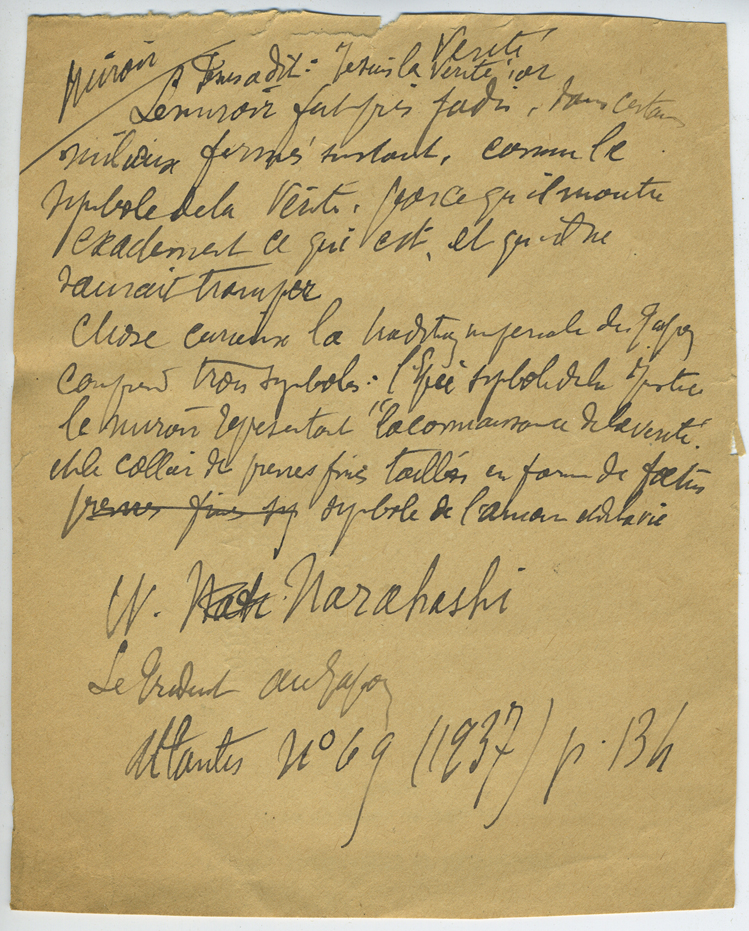 Miroir
Vérité
Jésus a dit : Je suis la Vérité, or
Le miroir fut pris jadis, dans certains
milieux fermés surtout, comme le
symbole de la Vérité, parce qu'il montre
exactement ce qui est, et qu'il ne
saurait tromper
Chose curieuse la tradition impériale du Japon
comprend trois symboles : l'Epée symbole de la Justice
le miroir représentant "la connaissance de la vérité"
et le collier de pierres fines taillées en forme de foetus
pierres fines sy symbole de l'amour et de la vie
Narahashi
Le au Japon
Atlantis n° 69 (1937) p. 134